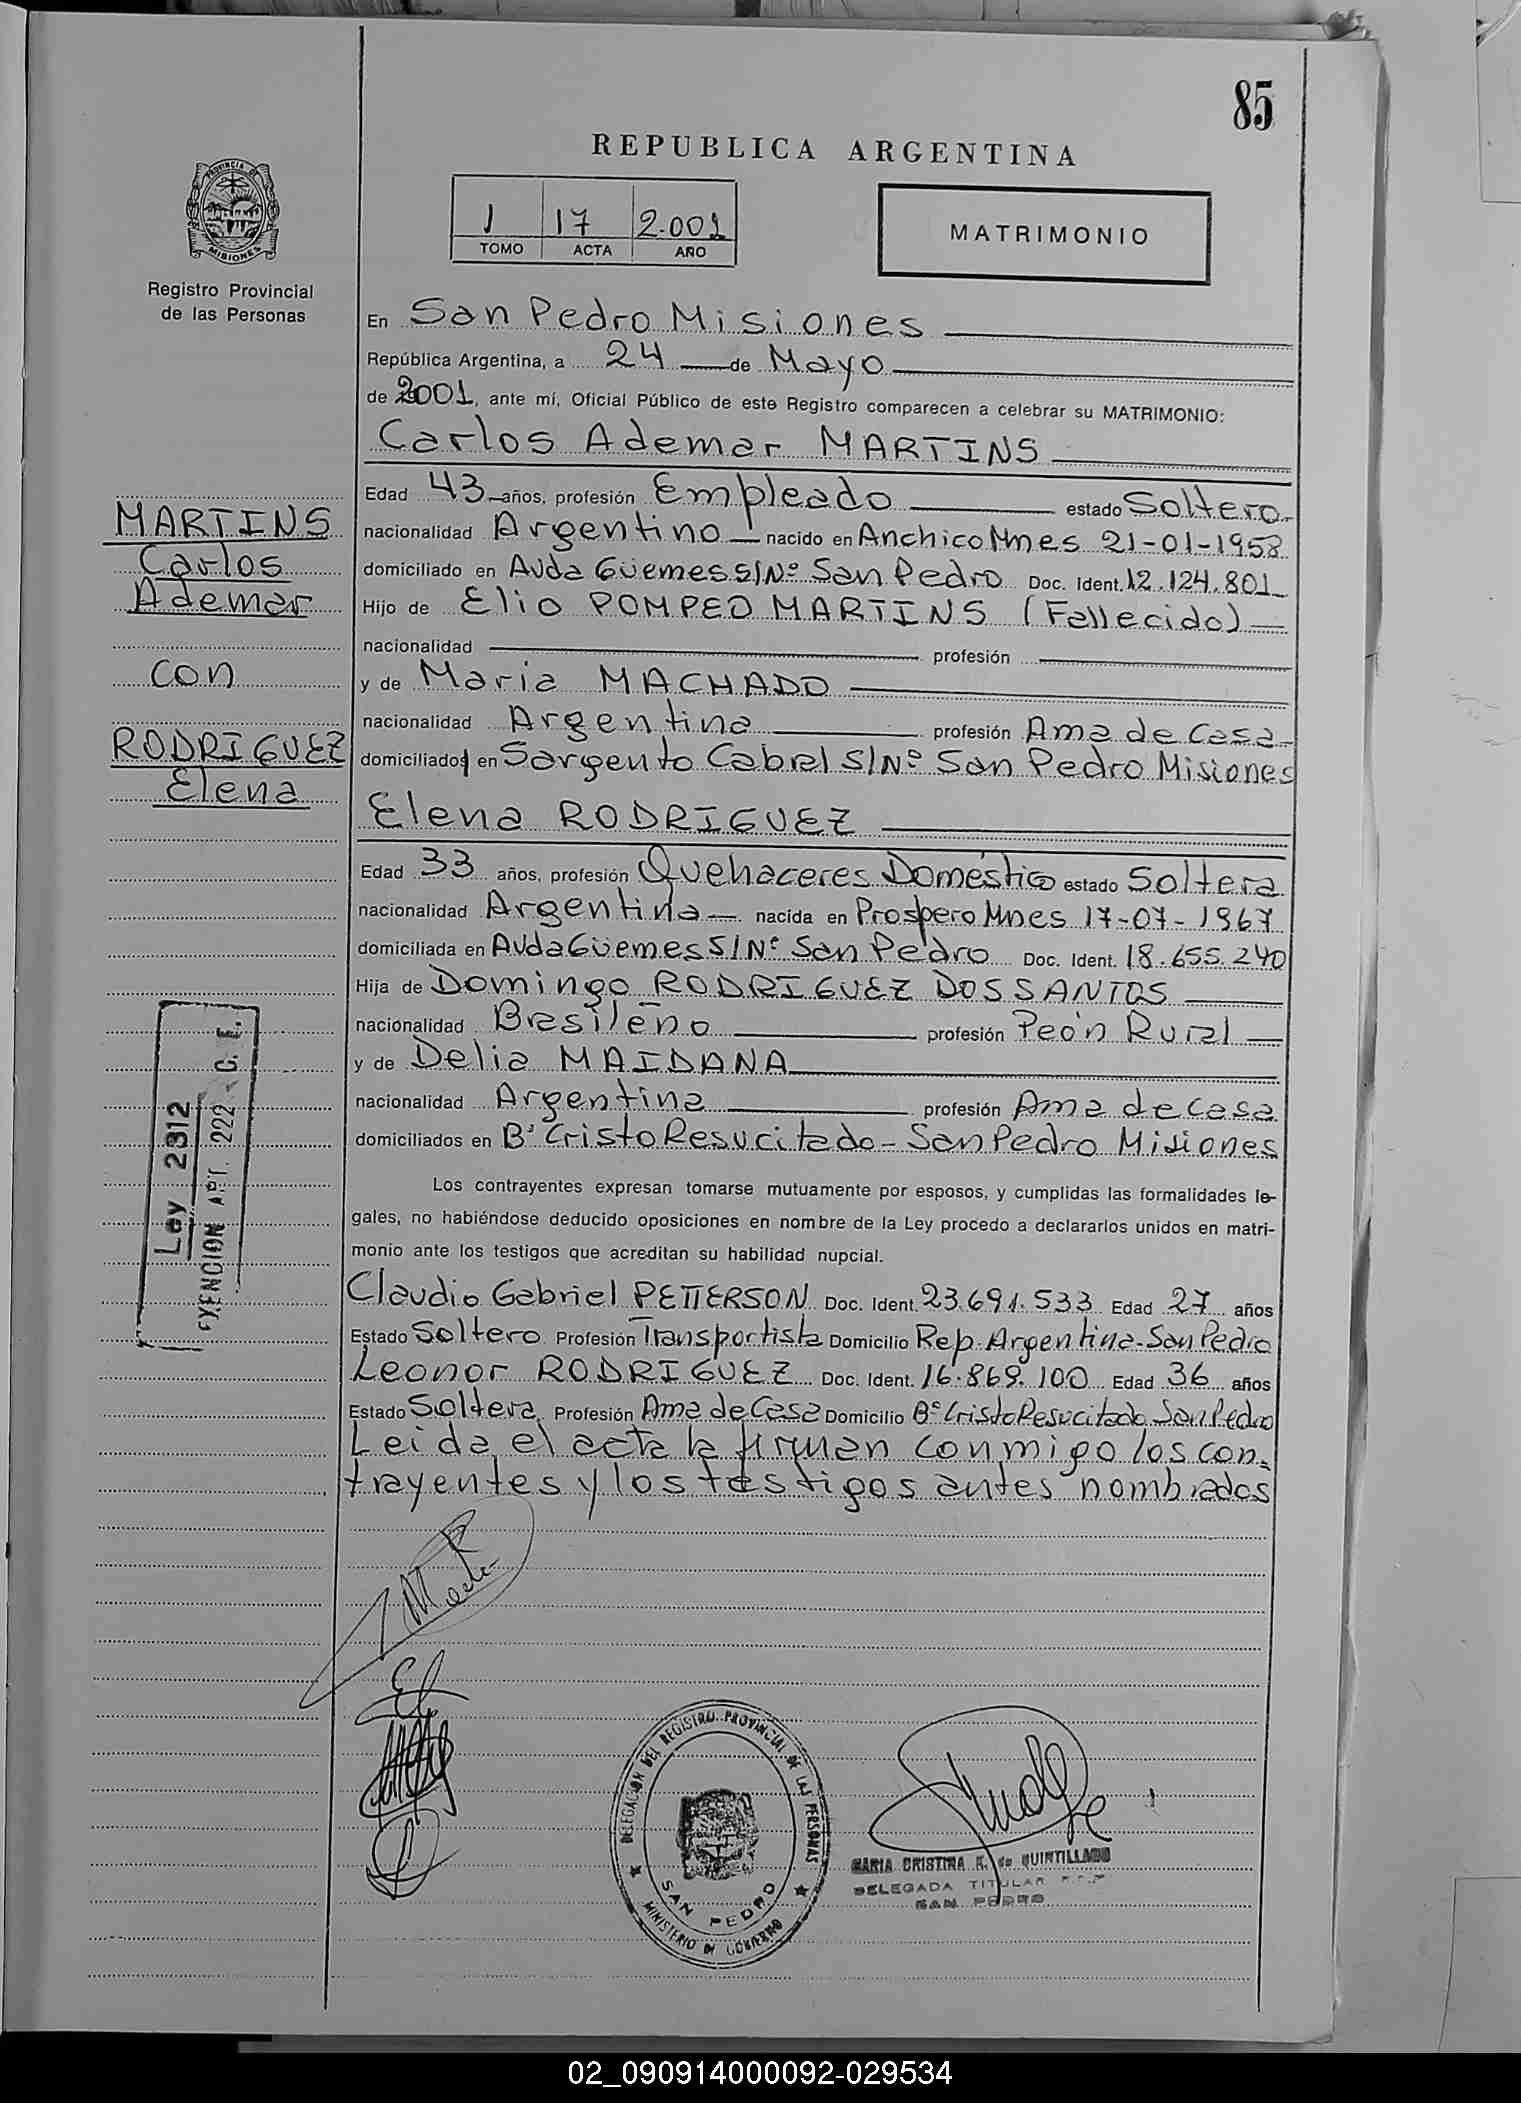 85
REPUBLICA ARGENTINA
PROVINCIA DE
MISIONES
Registro Provincial
de las Personas
1 17 2.001
TOMO ACTA AÑO
MATRIMONIO
En San Pedro Misiones
República Argentina, a 24 de Mayo
de 2001, ante mí, Oficial Público de este Registro comparecen a celebrar su MATRIMONIO:
Carlos Ademar MARTINS
Edad 43 años, profesión Empleado estado Soltero
nacionalidad Argentino nacido en Anchico Mnes 21-01-1958
domiciliado en Avda Güemes S/Nº San Pedro Doc. Ident. 12.124.801
Hijo de Elio POMPEO MARTINS (Fallecido)
nacionalidad profesión
y de Maria MACHADO
nacionalidad Argentina profesión Ama de Casa
domiciliados en Sargento Cabral S/Nº San Pedro Misiones
MARTINS
Carlos
Ademar
con
RODRIGUEZ
Elena
Elena RODRIGUEZ
Edad 33 años, profesión Quehaceres Doméstico estado Soltera
nacionalidad Argentina nacida en Prospero Mnes 17-07-1967
domiciliada en Avda Güemes S/Nº San Pedro Doc. Ident. 18.655.240
Hija de Domingo RODRIGUEZ DOS SANTOS
nacionalidad Brasileño profesión Peón Rural
y de Delia MAIDANA
nacionalidad Argentina profesión Ama de Casa
domiciliados en Bº Cristo Resucitado - San Pedro Misiones
Ley 2312
EXENCION ART. 222 C. F.
Los contrayentes expresan tomarse mutuamente por esposos, y cumplidas las formalidades le-
gales, no habiéndose deducido oposiciones en nombre de la Ley procedo a declararlos unidos en matri-
monio ante los testigos que acreditan su habilidad nupcial.
Claudio Gabriel PETTERSON Doc. Ident. 23.691.533 Edad 27 años
Estado Soltero Profesión Transportista Domicilio Rep. Argentina - San Pedro
Leonor RODRIGUEZ Doc. Ident. 16.869.100 Edad 36 años
Estado Soltera Profesión Ama de Casa Domicilio Bº Cristo Resucitado San Pedro
Leida el acta la firman conmigo los con-
trayentes y los testigos antes nombrados
DELEGACION DEL REGISTRO PROVINCIAL DE LAS PERSONAS
SAN PEDRO
MINISTERIO DE GOBIERNO
MARIA CRISTINA R. de QUINTILLANO
DELEGADA TITULAR
SAN PEDRO
02_090914000092-029534